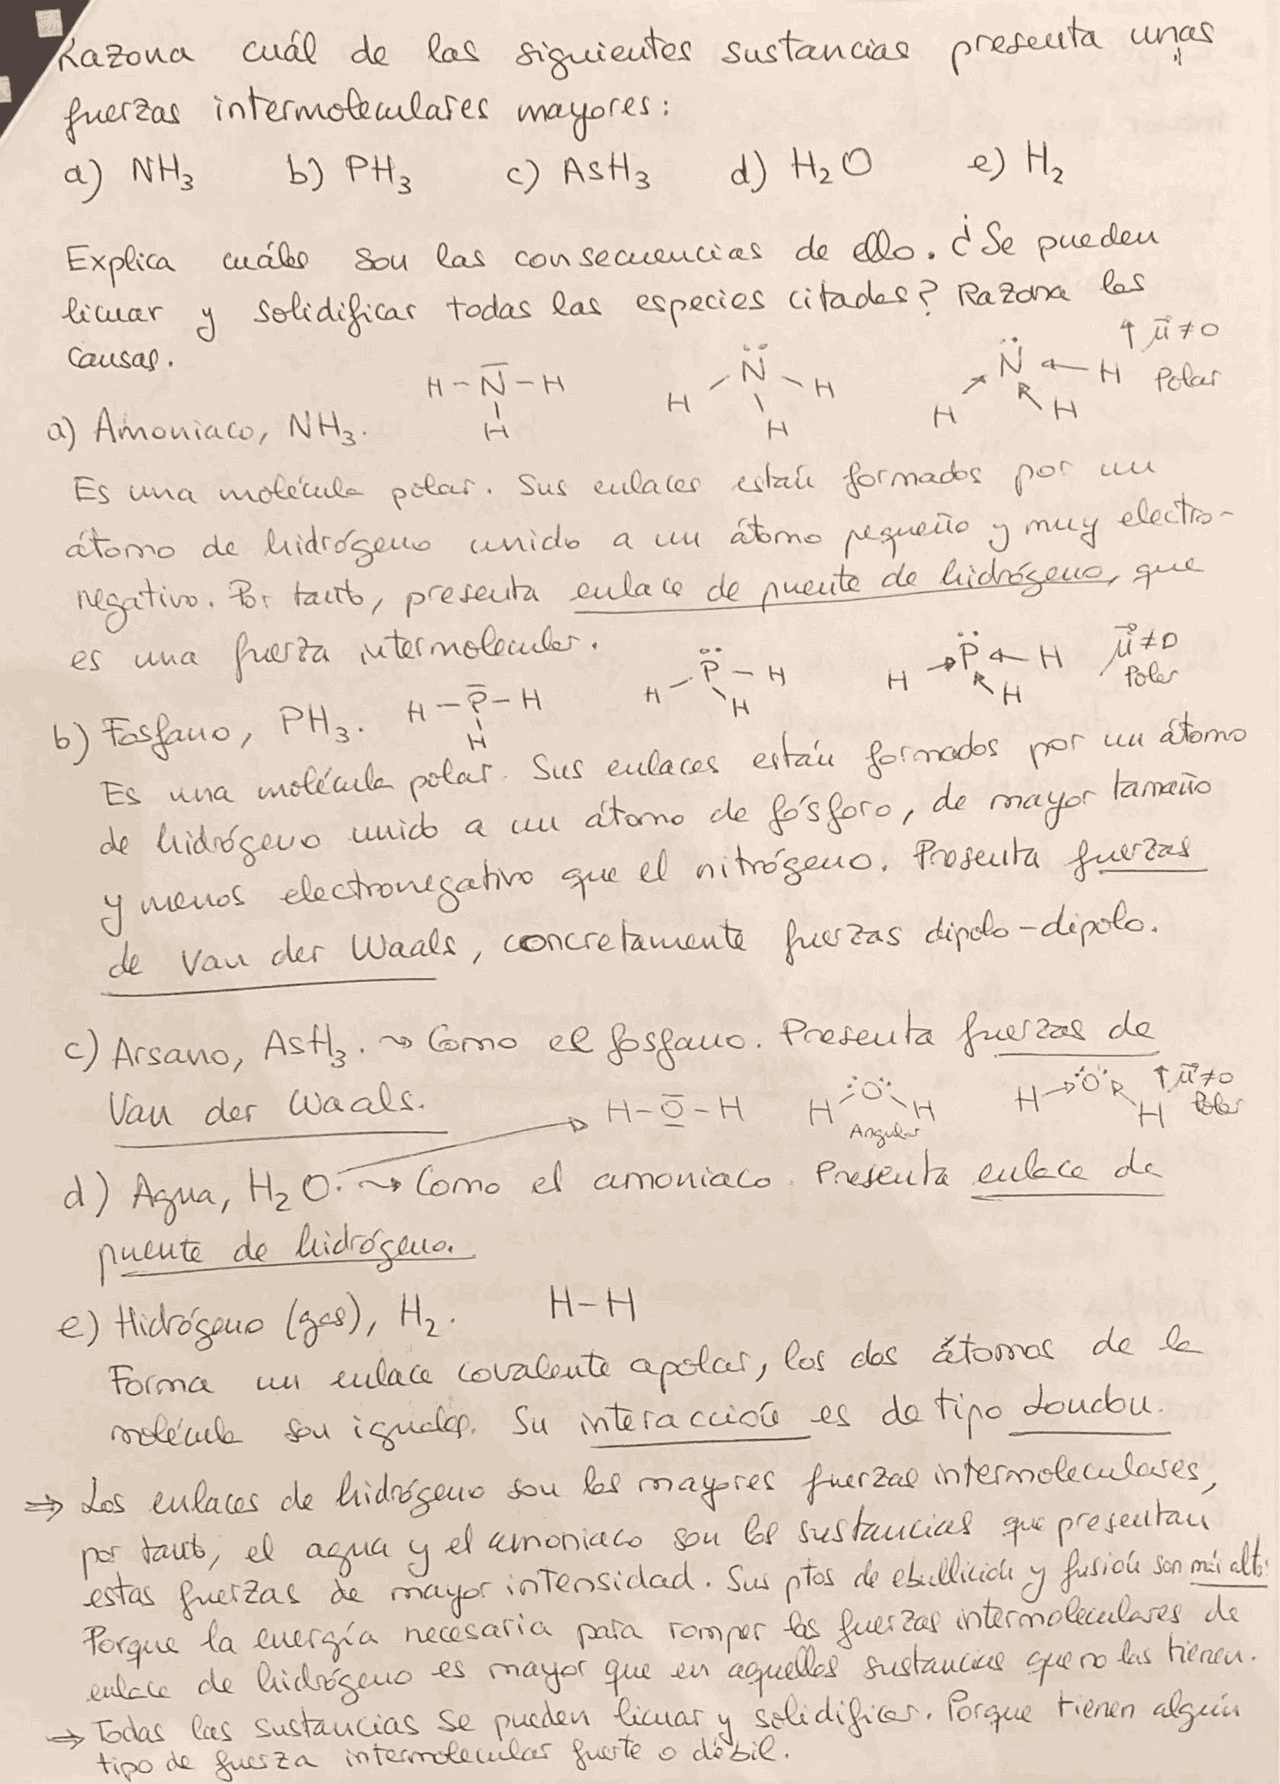 Razona cuál de las siguientes sustancias presenta unas
fuerzas intermoleculares mayores:
a) NH₃ b) PH₃ c) AsH₃ d) H₂O e) H₂
Explica cuáles son las consecuencias de ello. ¿Se pueden
licuar y solidificar todas las especies citadas? Razona las
causas.
H - N - H
H
N
H H
H
N H
H H
↑ μ ≠ 0
Polar
a) Amoniaco, NH₃.
Es una molécula polar. Sus enlaces están formados por un
átomo de hidrógeno unido a un átomo pequeño y muy electro-
negativo. Por tanto, presenta enlace de puente de hidrógeno, que
es una fuerza intermolecular.
b) Fosfano, PH₃. H - P - H
H
P - H
H H
H → P ← H
H
μ ≠ 0
Polar
Es una molécula polar. Sus enlaces están formados por un átomo
de hidrógeno unido a un átomo de fósforo, de mayor tamaño
y menos electronegativo que el nitrógeno. Presenta fuerzas
de Van der Waals, concretamente fuerzas dipolo-dipolo.
c) Arsano, AsH₃. ⇝ Como el fosfano. Presenta fuerzas de
Van der Waals.
H - O - H
O
H H
Angular
H → O
H
↑ μ ≠ 0
Polar
d) Agua, H₂O. ⇝ Como el amoniaco. Presenta enlace de
puente de hidrógeno.
e) Hidrógeno (gas), H₂. H - H
Forma un enlace covalente apolar, los dos átomos de la
molécula son iguales. Su interacción es de tipo London.
⇒ Los enlaces de hidrógeno son las mayores fuerzas intermoleculares,
por tanto, el agua y el amoniaco son las sustancias que presentan
estas fuerzas de mayor intensidad. Sus ptos de ebullición y fusión son más altos
Porque la energía necesaria para romper las fuerzas intermoleculares de
enlace de hidrógeno es mayor que en aquellas sustancias que no las tienen.
⇒ Todas las sustancias se pueden licuar y solidificar. Porque tienen algún
tipo de fuerza intermolecular fuerte o débil.